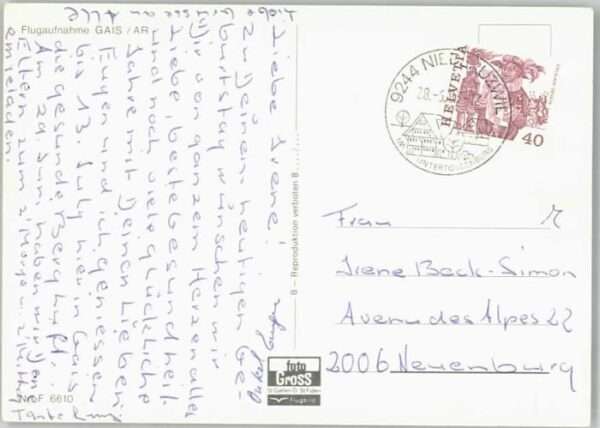 Flugaufnahme GAIS / AR
Liebe Grüsse an Alle
Liebe Irene!
Zu Deinem heutigen Ge-
burtstag wünschen wir
Dir von ganzem Herzen alles
Liebe, beste Gesundheit
und noch viele glückliche
Jahre mit Deinen Lieben.
Eugen und ich geniessen
bis 13. July hier in Gais
die gesunde Bergluft.
Am 29. Juni haben wir Den
Eltern zum z'Morge u. z'Mittag
eingeladen.
Onkel Eugen
Tante
Nr. F 6610
B – Reproduktion verboten B
foto
GROSS
St. Gallen
Flugbild
9244 NIEDERUZWIL
28.-5.
IM UNTERTOGGENBURG
HELVETIA
40
Frau
Irene Beck-Simon
Avenue des Alpes 22
2006 Neuenburg